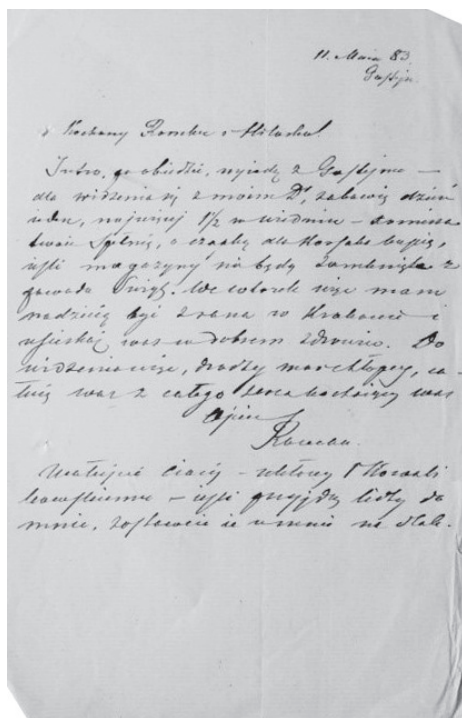 11. Maia 83.
Gastejn.
Kochany Romku i Stilasku!
Jutro, po obiedzie, wyjadę z Gastejnu —
dla widzenia się z moim Dr, zabawię dzień
jeden, najwięcej 1½ w Wiedniu —
twoie spełnię, a czapkę dla kupię,
jeśli magazyny nie będą zamknięte z
powodu Świąt. We wtorek więc mam
nadzieję być z rana w Krakowie i
uściskać was w dobrem zdrowiu. Do
widzenia więc, drodzy moi chłopcy, ca-
łuię was z całego serca kochaiący was
Ojciec
Ucałuycie Ciocię — ukłony
— ieśli przyjdą listy do
mnie, zostawcie ie u mnie na stole.